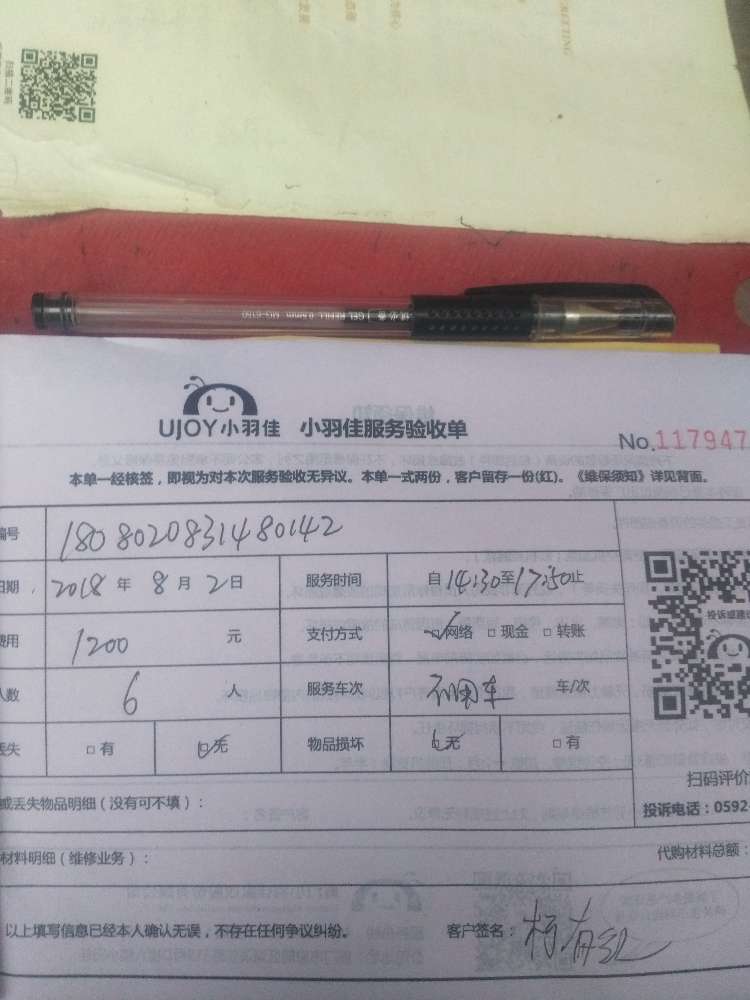 扫描二维码
UJOY小羽佳 小羽佳服务验收单
No.117947
本单一经核签，即视为对本次服务验收无异议。本单一式两份，客户留存一份(红)。《维保须知》详见背面。
编号 1808020831480142
日期， 2018 年 8 月 2 日 服务时间 自14:30至17:50止
费用 1200 元 支付方式 □网络 □现金 □转账
人数 6 人 服务车次 不用车 车/次
丢失 □有 □无 物品损坏 □无 □有
投诉或建议
扫码评价
投诉电话：0592
或丢失物品明细（没有可不填）：
材料明细（维修业务）： 代购材料总额：
以上填写信息已经本人确认无误，不存在任何争议纠纷。 客户签名：